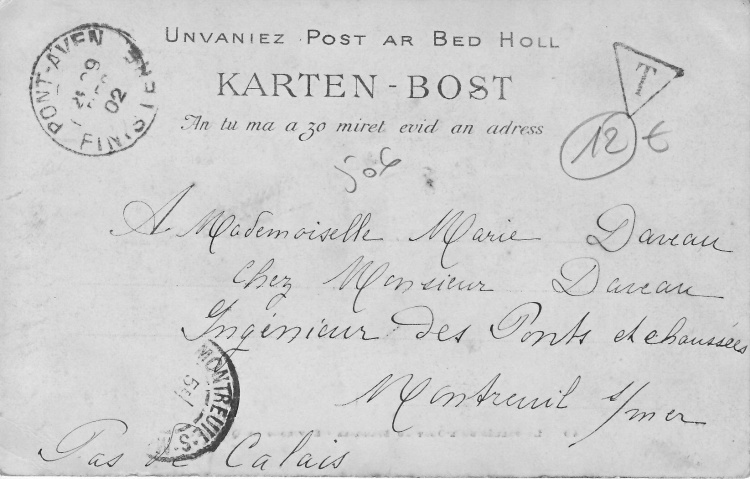 UNVANIEZ POST AR BED HOLL
KARTEN-BOST
An tu ma a zo miret evid an adress
PONT-AVEN
02
FINISTERE
T
12 €
506
A Mademoiselle Marie Daveau
chez Monsieur Daveau
Ingénieur des Ponts et chaussées
Montreuil s/mer
Pas de Calais
MONTREUIL-S-